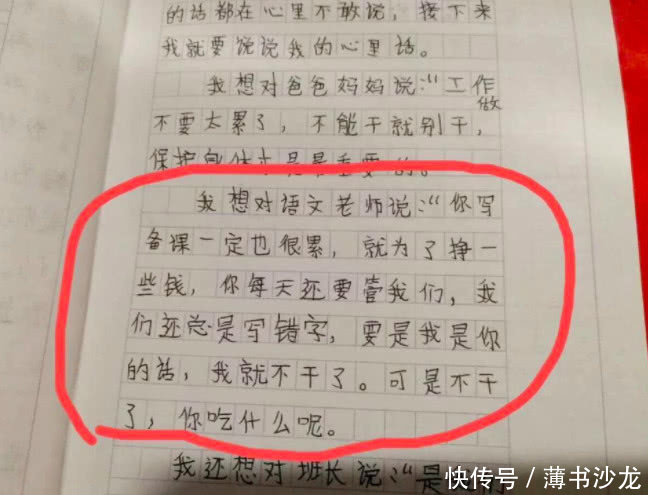 的话都在心里不敢说，接下来
我就要说说我的心里话。
我想对爸爸妈妈说：“工作做
不要太累了，不能干就别干，
保护身体才是最重要的。
我想对语文老师说：“你写
备课一定也很累，就为了挣一
些钱，你每天还要管我们，我
们还总是写错字，要是我是你
的话，我就不干了。可是不干
了，你吃什么呢。
我还想对班长说：“是
快传号／薄书沙龙